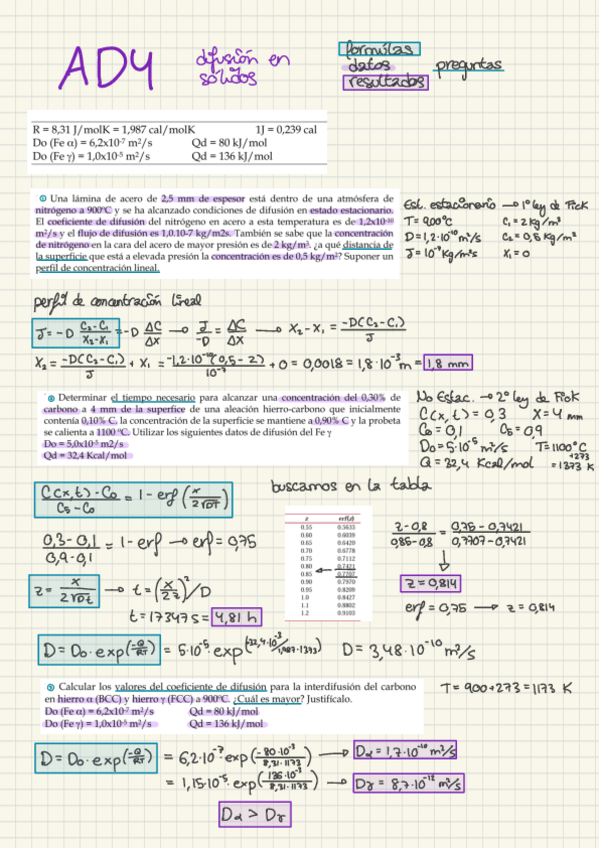 AD4
difusión en
sólidos
formúlas
datos
resultados
preguntas
R = 8,31 J/molK = 1,987 cal/molK 1J = 0,239 cal
Do (Fe α) = 6,2x10-7 m2/s Qd = 80 kJ/mol
Do (Fe γ) = 1,0x10-5 m2/s Qd = 136 kJ/mol
① Una lámina de acero de 2,5 mm de espesor está dentro de una atmósfera de
nitrógeno a 900ºC y se ha alcanzado condiciones de difusión en estado estacionario.
El coeficiente de difusión del nitrógeno en acero a esta temperatura es de 1,2x10-10
m2/s y el flujo de difusión es 1,0.10-7 kg/m2s. También se sabe que la concentración
de nitrógeno en la cara del acero de mayor presión es de 2 kg/m3. ¿a qué distancia de
la superficie que está a elevada presión la concentración es de 0,5 kg/m3? Suponer un
perfil de concentración lineal.
Est. estacionario → 1º ley de Fick
T = 900ºC C₁ = 2 kg/m³
D = 1,2·10⁻¹⁰ m²/s C₂ = 0,5 kg/m³
J = 10⁻⁷ kg/m²s X₁ = 0
perfil de concentración lineal
J = -D C₂-C₁/X₂-X₁ = -D ΔC/ΔX → J/-D = ΔC/ΔX → X₂ - X₁ = -D(C₂-C₁)/J
X₂ = -D(C₂-C₁)/J + X₁ = -1,2·10⁻¹⁰(0,5-2)/10⁻⁷ + 0 = 0,0018 = 1,8·10⁻³ m = 1,8 mm
② Determinar el tiempo necesario para alcanzar una concentración del 0,30% de
carbono a 4 mm de la superfice de una aleación hierro-carbono que inicialmente
contenía 0,10% C, la concentración de la superficie se mantiene a 0,90% C y la probeta
se calienta a 1100 ºC. Utilizar los siguientes datos de difusión del Fe γ
Do = 5,0x10-5 m2/s
Qd = 32,4 Kcal/mol
No Estac. → 2º ley de Fick
C(x,t) = 0,3 X = 4 mm
C₀ = 0,1 Cs = 0,9
D₀ = 5·10⁻⁵ m²/s T = 1100ºC
+273
Q = 32,4 Kcal/mol = 1373 K
C(x,t)-C₀/Cs-C₀ = 1 - erf(x/2√Dt)
buscamos en la tabla
0,3-0,1/0,9-0,1 = 1 - erf → erf = 0,75
z = x/2√Dt → t = (x/2z)²/D
t = 17347 s = 4,81 h
z erf(z)
0.55 0.5633
0.60 0.6039
0.65 0.6420
0.70 0.6778
0.75 0.7112
0.80 0.7421
0.85 0.7707
0.90 0.7970
0.95 0.8209
1.0 0.8427
1.1 0.8802
1.2 0.9103
z-0,8/0,85-0,8 = 0,75-0,7421/0,7707-0,7421
z = 0,814
erf = 0,75 → z = 0,814
D = D₀·exp(-Q/RT) = 5·10⁻⁵ exp(-32,4·10³/1,987·1373) D = 3,48·10⁻¹⁰ m²/s
③ Calcular los valores del coeficiente de difusión para la interdifusión del carbono
en hierro α (BCC) y hierro γ (FCC) a 900ºC. ¿Cuál es mayor? Justifícalo.
Do (Fe α) = 6,2x10-7 m2/s Qd = 80 kJ/mol
Do (Fe γ) = 1,0x10-5 m2/s Qd = 136 kJ/mol
T = 900+273 = 1173 K
D = D₀·exp(-Q/RT) = 6,2·10⁻⁷ exp(-80·10⁻³/8,31·1173) → Dα = 1,7·10⁻¹⁰ m²/s
= 1,15·10⁻⁵ exp(136·10⁻³/8,31·1173) → Dγ = 8,7·10⁻¹² m²/s
Dα > Dγ